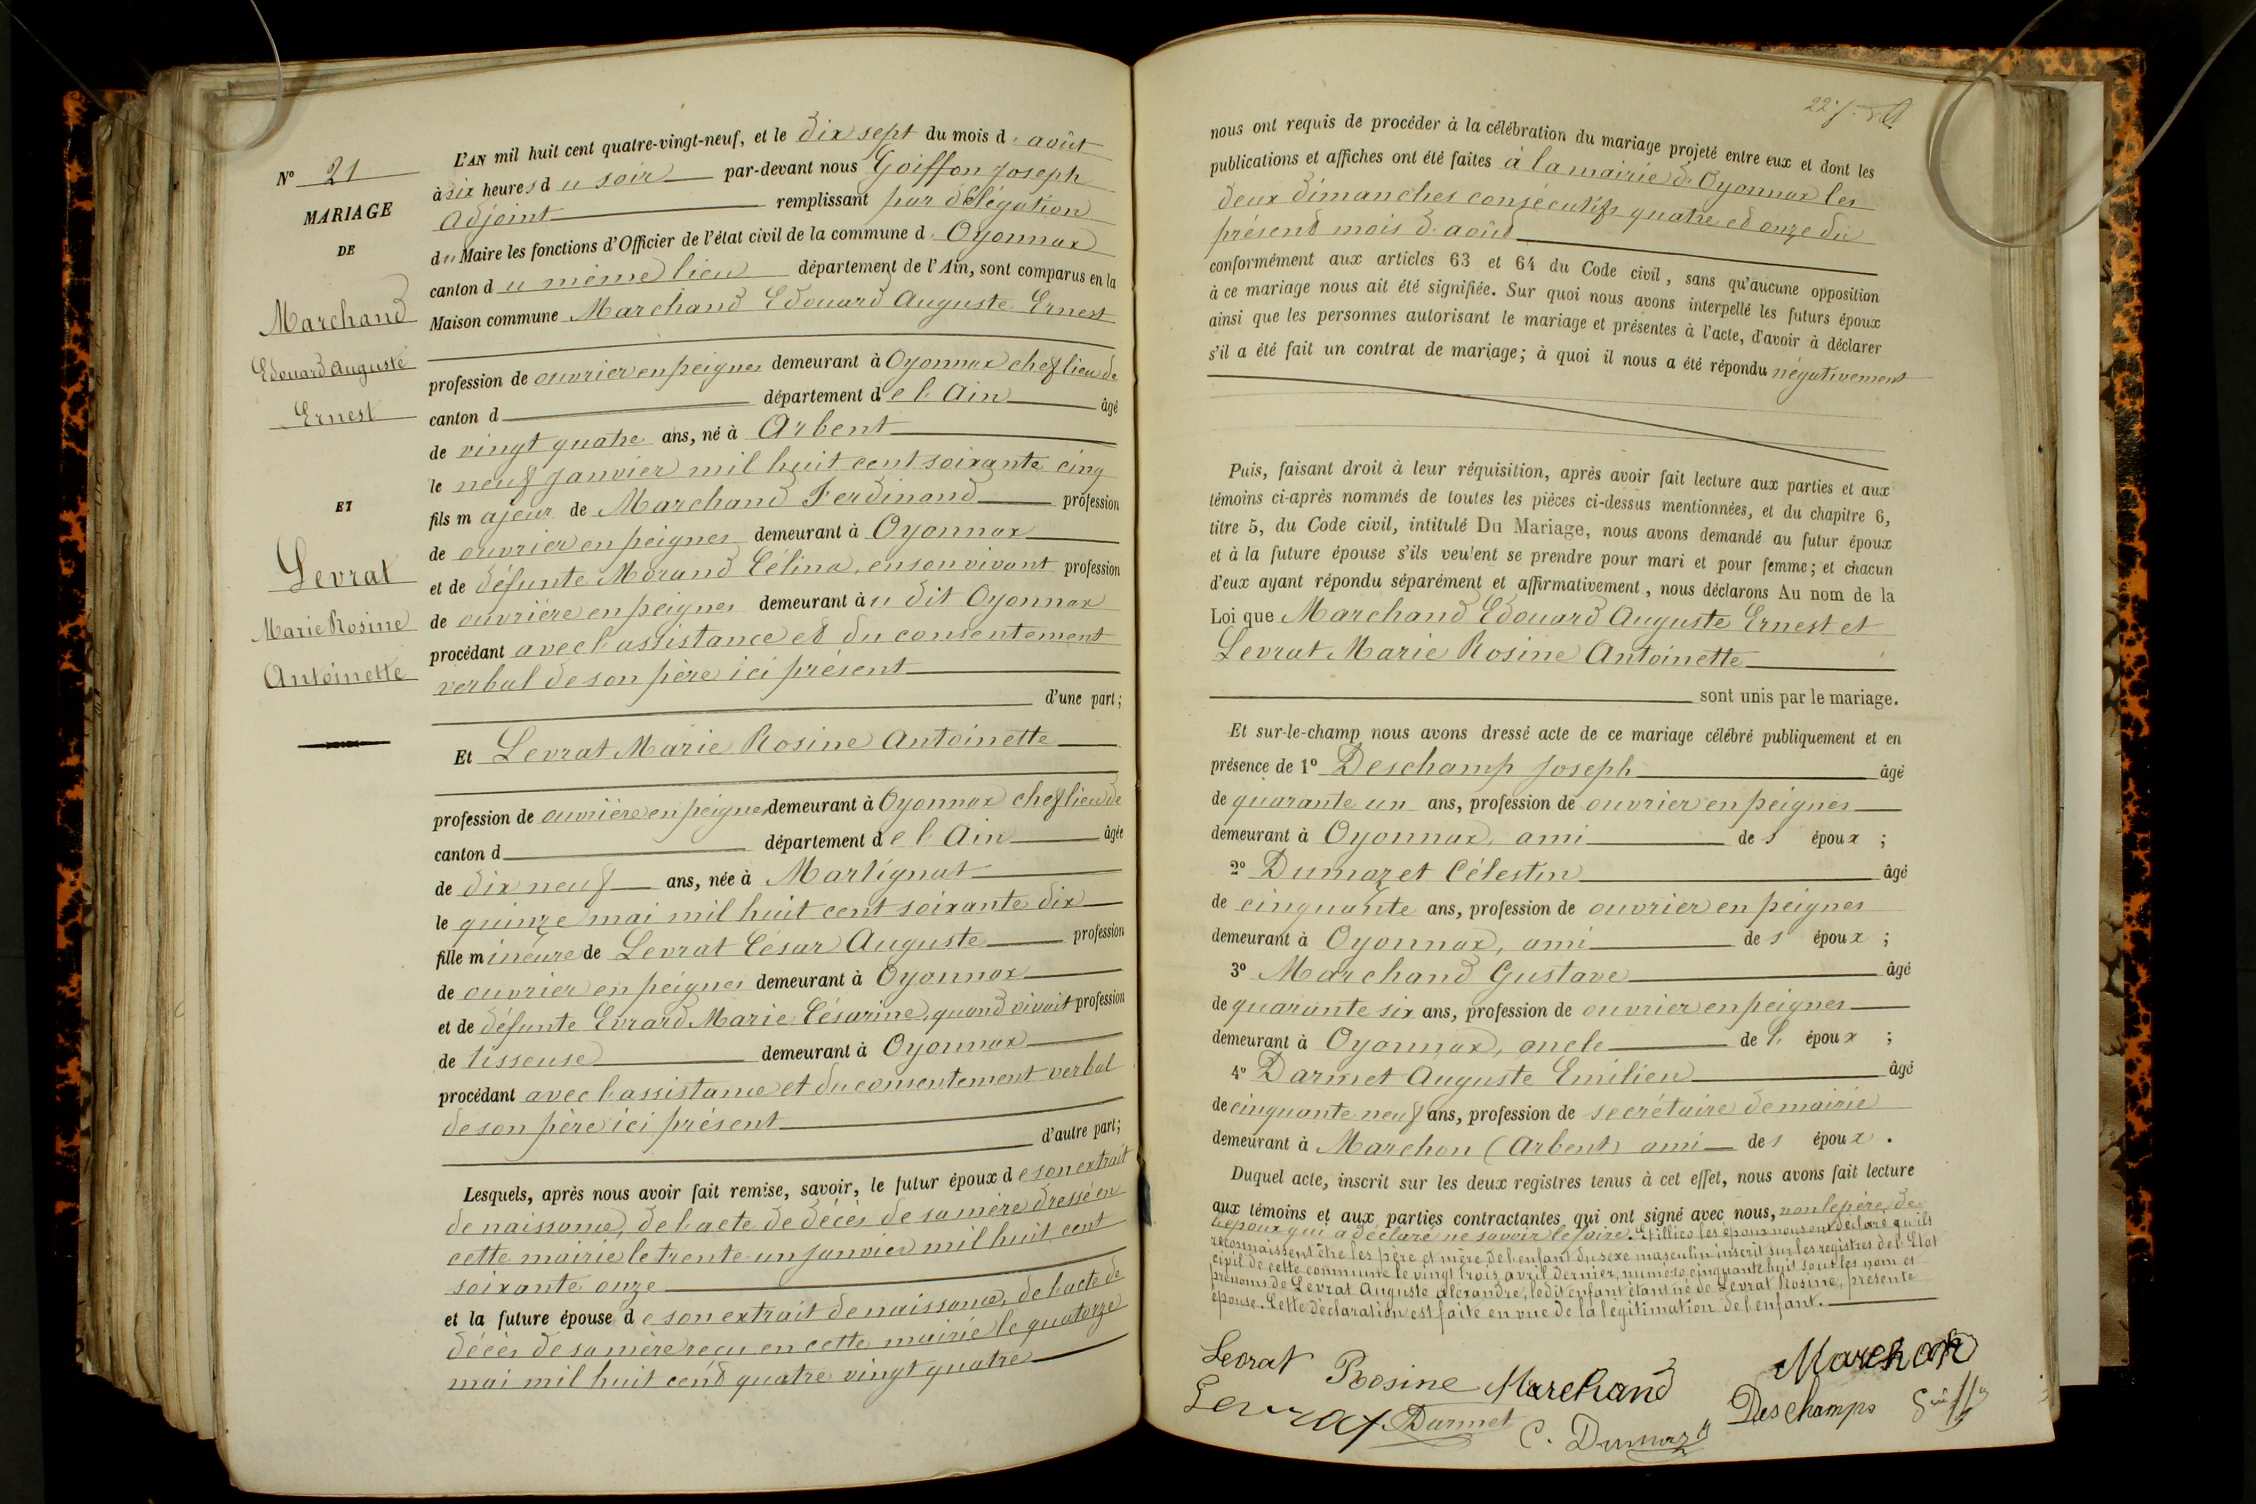 N° 21
MARIAGE
DE
Marchand
Edouard Auguste
Ernest
ET
Levrat
Marie Rosine
Antoinette
L'AN mil huit cent quatre-vingt-neuf, et le dix sept du mois d'août
à six heures du soir par-devant nous Goiffon Joseph
Adjoint remplissant par délégation
du Maire les fonctions d'Officier de l'état civil de la commune d'Oyonnax
canton du même lieu département de l'Ain, sont comparus en la
Maison commune Marchand Edouard Auguste Ernest
profession de ouvrier en peignes demeurant à Oyonnax chef lieu de
canton d département de l'Ain âgé
de vingt quatre ans, né à Arbent
le neuf janvier mil huit cent soixante cinq
fils majeur de Marchand Ferdinand profession
de ouvrier en peignes demeurant à Oyonnax
et de défunte Morand Célina, en son vivant profession
de ouvrière en peignes demeurant au dit Oyonnax
procédant avec l'assistance et du consentement
verbal de son père ici présent
d'une part;
Et Levrat Marie Rosine Antoinette
profession de ouvrière en peignes demeurant à Oyonnax chef lieu de
canton d département de l'Ain âgée
de dix neuf ans, née à Martignat
le quinze mai mil huit cent soixante dix
fille mineure de Levrat César Auguste profession
de ouvrier en peignes demeurant à Oyonnax
et de défunte Evrard Marie Césarine, quand vivait profession
de tisseuse demeurant à Oyonnax
procédant avec l'assistance et du consentement verbal
de son père ici présent
d'autre part;
Lesquels, après nous avoir fait remise, savoir, le futur époux de son extrait
de naissance, de l'acte de décès de sa mère dressé en
cette mairie le trente-un janvier mil huit cent
soixante onze
et la future épouse de son extrait de naissance, de l'acte de
décès de sa mère reçu en cette mairie le quatorze
mai mil huit cent quatre vingt quatre
nous ont requis de procéder à la célébration du mariage projeté entre eux et dont les
publications et affiches ont été faites à la mairie d'Oyonnax les
deux dimanches consécutifs quatre et onze du
présent mois d'août
conformément aux articles 63 et 64 du Code civil, sans qu'aucune opposition
à ce mariage nous ait été signifiée. Sur quoi nous avons interpellé les futurs époux
ainsi que les personnes autorisant le mariage et présentes à l'acte, d'avoir à déclarer
s'il a été fait un contrat de mariage; à quoi il nous a été répondu négativement
Puis, faisant droit à leur réquisition, après avoir fait lecture aux parties et aux
témoins ci-après nommés de toutes les pièces ci-dessus mentionnées, et du chapitre 6,
titre 5, du Code civil, intitulé Du Mariage, nous avons demandé au futur époux
et à la future épouse s'ils veulent se prendre pour mari et pour femme; et chacun
d'eux ayant répondu séparément et affirmativement, nous déclarons Au nom de la
Loi que Marchand Edouard Auguste Ernest et
Levrat Marie Rosine Antoinette
sont unis par le mariage.
Et sur-le-champ nous avons dressé acte de ce mariage célébré publiquement et en
présence de 1° Deschamp Joseph âgé
de quarante un ans, profession de ouvrier en peignes
demeurant à Oyonnax, ami des époux;
2° Dumazet Célestin âgé
de cinquante ans, profession de ouvrier en peignes
demeurant à Oyonnax, ami des époux;
3° Marchand Gustave âgé
de quarante six ans, profession de ouvrier en peignes
demeurant à Oyonnax, oncle de l'époux;
4° Darmet Auguste Emilien âgé
de cinquante neuf ans, profession de secrétaire de mairie
demeurant à Marchon (Arbent) ami des époux.
Duquel acte, inscrit sur les deux registres tenus à cet effet, nous avons fait lecture
aux témoins et aux parties contractantes qui ont signé avec nous, non le père de
l'époux qui a déclaré ne savoir le faire. Et illico les époux nous ont déclaré qu'ils
reconnaissent être les père et mère de l'enfant du sexe masculin inscrit sur les registres de l'Etat
civil de cette commune le vingt trois avril dernier, numéro cinquante huit sous les nom et
prénoms de Levrat Auguste Alexandre, ledit enfant étant né de Levrat Rosine, présente
épouse. Cette déclaration est faite en vue de la légitimation de l'enfant.
Levrat Rosine Marchand Marchand
Levrat Darmet C. Dumazet Deschamps